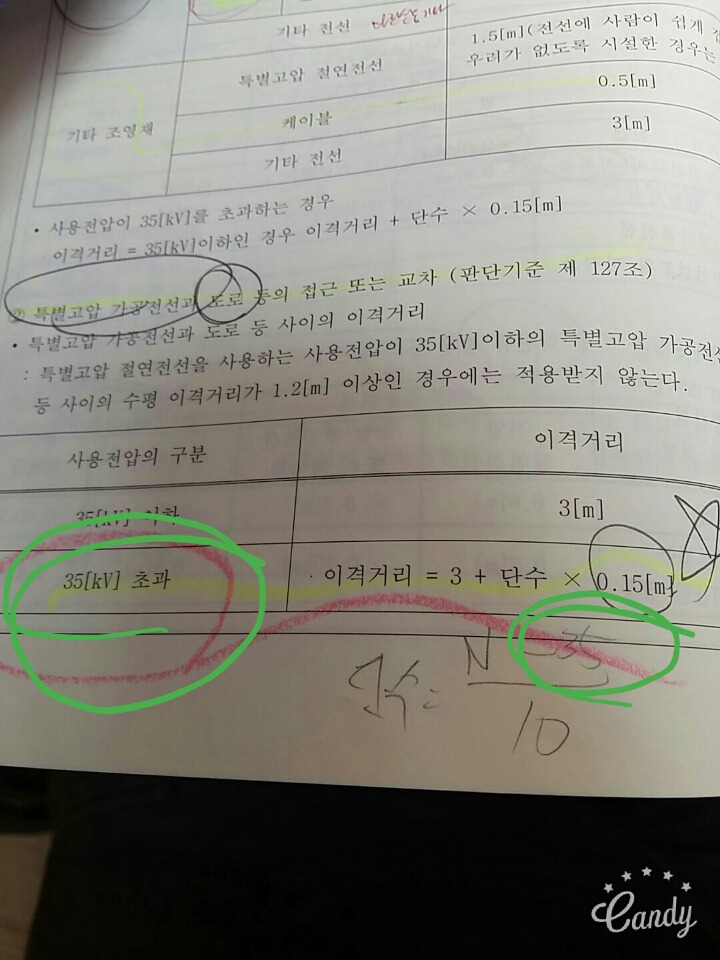 기타 전선
1.5[m](전선에 사람이 쉽게
우려가 없도록 시설한 경우는
특별고압 절연전선
0.5[m]
기타 조영재
케이블
3[m]
기타 전선
· 사용전압이 35[kV]를 초과하는 경우
이격거리 = 35[kV]이하인 경우 이격거리 + 단수 × 0.15[m]
② 특별고압 가공전선과 도로 등의 접근 또는 교차 (판단기준 제 127조)
· 특별고압 가공전선과 도로 등 사이의 이격거리
: 특별고압 절연전선을 사용하는 사용전압이 35[kV]이하의 특별고압 가공전선
등 사이의 수평 이격거리가 1.2[m] 이상인 경우에는 적용받지 않는다.
사용전압의 구분
이격거리
35[kV] 이하
3[m]
35[kV] 초과
· 이격거리 = 3 + 단수 × 0.15[m]
N - 35
단수 =
10
Candy